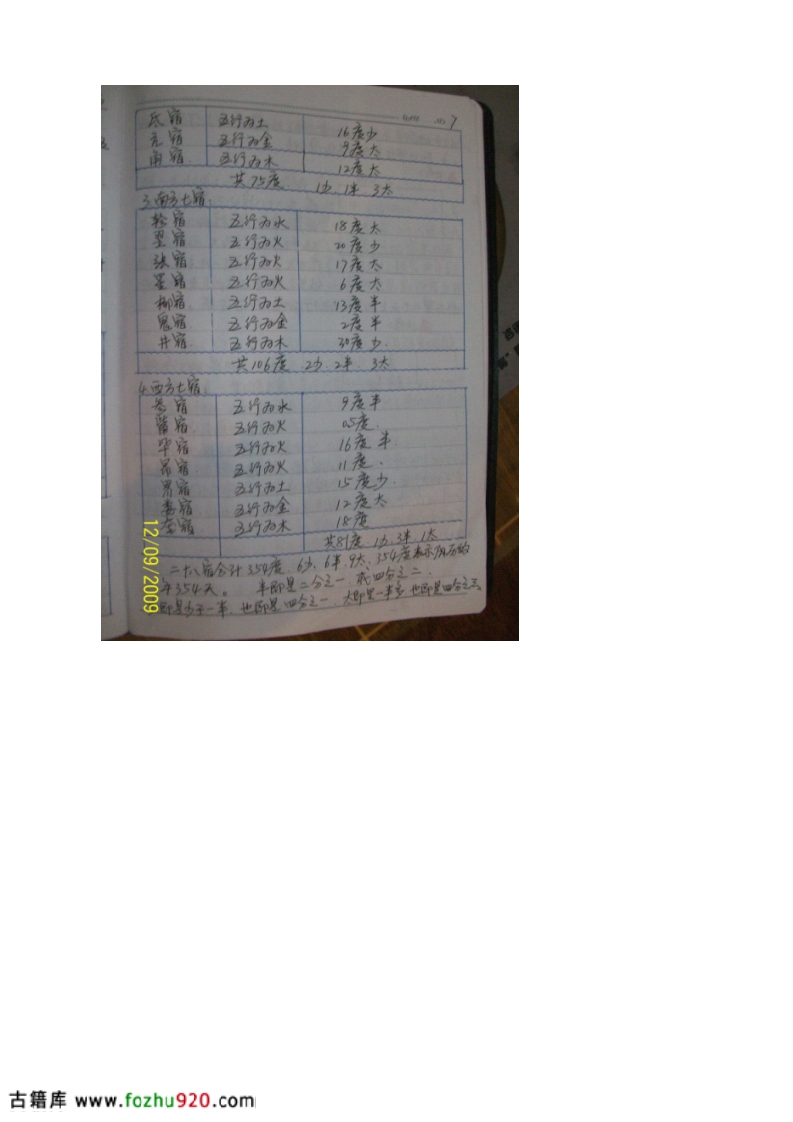 7
氐宿 五行为土 16度少
亢宿 五行为金 9度太
角宿 五行为木 12度太
共75度 1少.1半.3太
3.南方七宿.
轸宿 五行为水 18度太
翌宿 五行为火 20度少
张宿 五行为火 17度太
星宿 五行为火 6度太
柳宿 五行为土 13度半
鬼宿 五行为金 2度半
井宿 五行为木 30度少.
共106度.2少.2半.3太
4.西方七宿.
参宿 五行为水 9度半
觜宿 五行为火 05度.
毕宿 五行为火 16度半.
昴宿 五行为火 11度.
胃宿 五行为土 15度少.
娄宿 五行为金 12度太
奎宿 五行为木 18度
共81度.1少.3半.1太
二十八宿合计354度.6少.6半.9太.354度表示阴历的
年354天。半即是二分之一.或四分之二.
即是少于一半.也即是四分之一.太即是一半多.也即是四分之三。
12/09/2009
古籍库 www.fozhu920.com